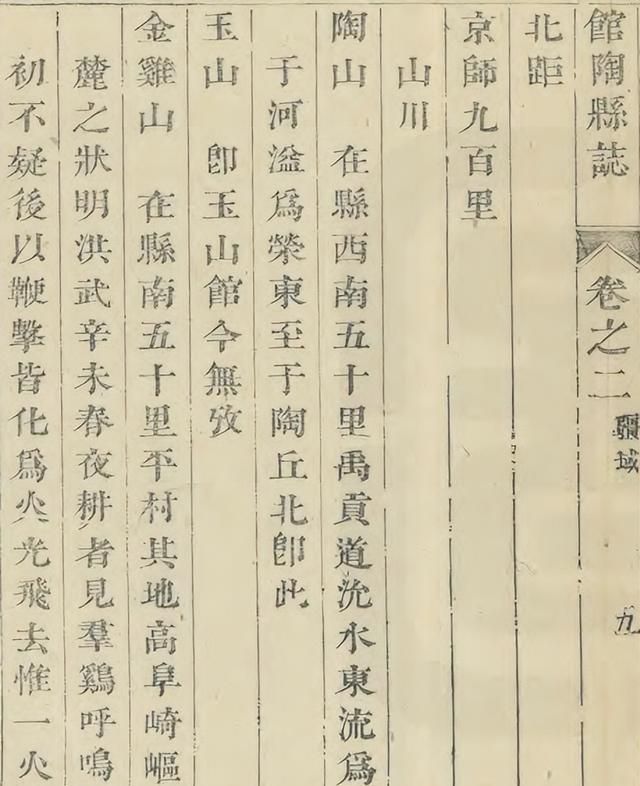 館陶縣誌 卷之二 疆域 九
北距
京師九百里
山川
陶山 在縣西南五十里禹貢道沇水東流爲
于河溢爲榮東至于陶丘北卽此
玉山 卽玉山館今無攷
金雞山 在縣南五十里平村其地高阜崎嶇
麓之狀明洪武辛未春夜耕者見羣鷄呼鳴
初不疑後以鞭擊皆化爲火光飛去惟一火